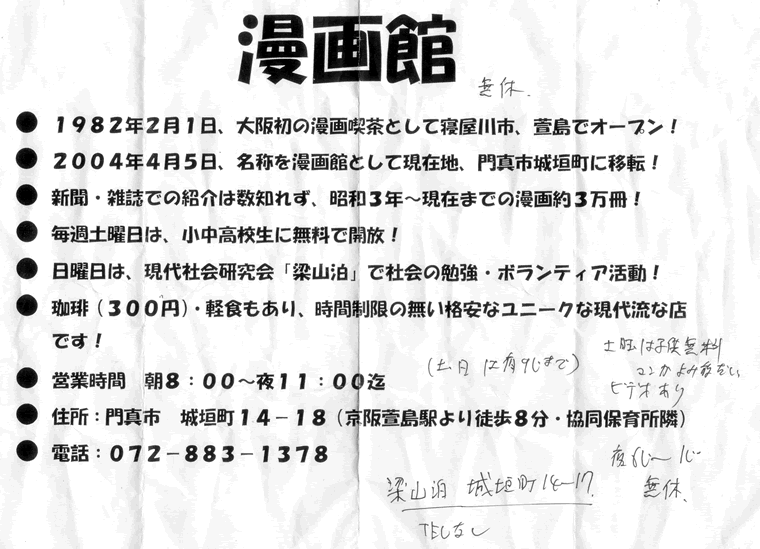 漫画館
無休.
● 1982年2月1日、大阪初の漫画喫茶として寝屋川市、萱島でオープン!
● 2004年4月5日、名称を漫画館として現在地、門真市城垣町に移転!
● 新聞・雑誌での紹介は数知れず、昭和3年~現在までの漫画約3万冊!
● 毎週土曜日は、小中高校生に無料で開放!
● 日曜日は、現代社会研究会「梁山泊」で社会の勉強・ボランティア活動!
● 珈琲(300円)・軽食もあり、時間制限の無い格安なユニークな現代流な店
です!
土日は子供無料
マンガよみ放だい
ビデオあり
(土日は夜9じまで)
● 営業時間 朝8:00~夜11:00迄
● 住所:門真市 城垣町14-18(京阪萱島駅より徒歩8分・協同保育所隣)
● 電話:072-883-1378
無休.
梁山泊 城垣町14~17.
TELなし